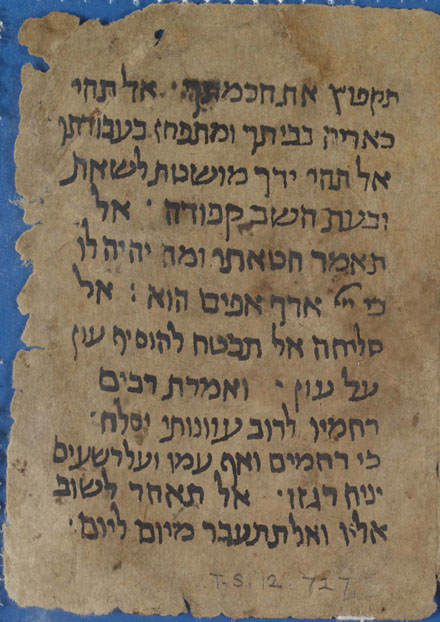 תקפוץ את חכמתך · אל תהי
כאריה בביתך ומתפחז בעבודתך
אל תהי ידך מושטת לשאת
ובעת השב קפודה · אל
תאמר חטאתי ומה יהיה לו
כי ייי ארך אפים הוא : אל
סליחה אל תבטח להוסיף עון
על עון · ואמרת רבים
רחמיו לרוב עוונותי יסלח ·
כי רחמים ואף עמו ועל רשעים
יניח רגזו · אל תאחר לשוב
אליו ואל תתעבר מיום ליום ·
T-S. 12. 727